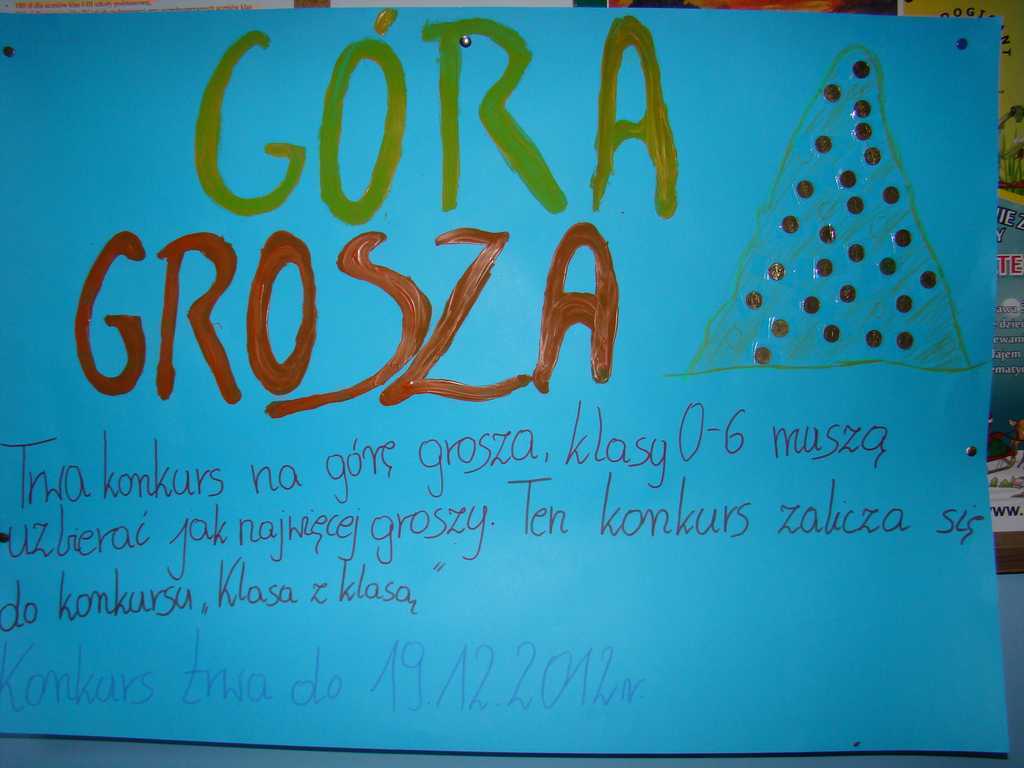 GÓRA
GROSZA
Trwa konkurs na górę grosza, klasy 0-6 muszą
uzbierać jak najwięcej groszy. Ten konkurs zalicza się
do konkursu „Klasa z klasą”
Konkurs trwa do 19.12.2012r.